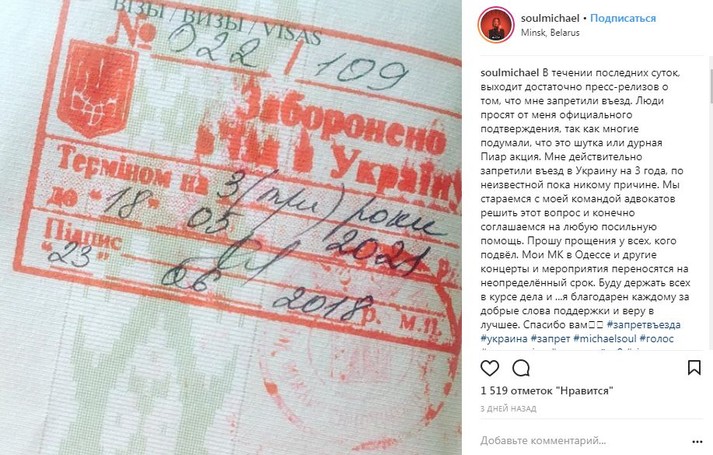 ВІЗЫ / ВИЗЫ / VISAS
№ 022 / 109
Заборонено
в'їзд в Україну
Терміном на 3 (три) роки
до "18" 05 2021 р.
Підпис
"23" 06 2018 р. м.п.
soulmichael • Подписаться
Minsk, Belarus
soulmichael В течении последних суток,
выходит достаточно пресс-релизов о
том, что мне запретили въезд. Люди
просят от меня официального
подтверждения, так как многие
подумали, что это шутка или дурная
Пиар акция. Мне действительно
запретили въезд в Украину на 3 года, по
неизвестной пока никому причине. Мы
стараемся с моей командой адвокатов
решить этот вопрос и конечно
соглашаемся на любую посильную
помощь. Прошу прощения у всех, кого
подвёл. Мои МК в Одессе и другие
концерты и мероприятия переносятся на
неопределённый срок. Буду держать всех
в курсе дела и ...я благодарен каждому за
добрые слова поддержки и веру в
лучшее. Спасибо вам #запретвъезда
#украина #запрет #michaelsoul #голос
1 519 отметок "Нравится"
3 ДНЕЙ НАЗАД
Добавьте комментарий...